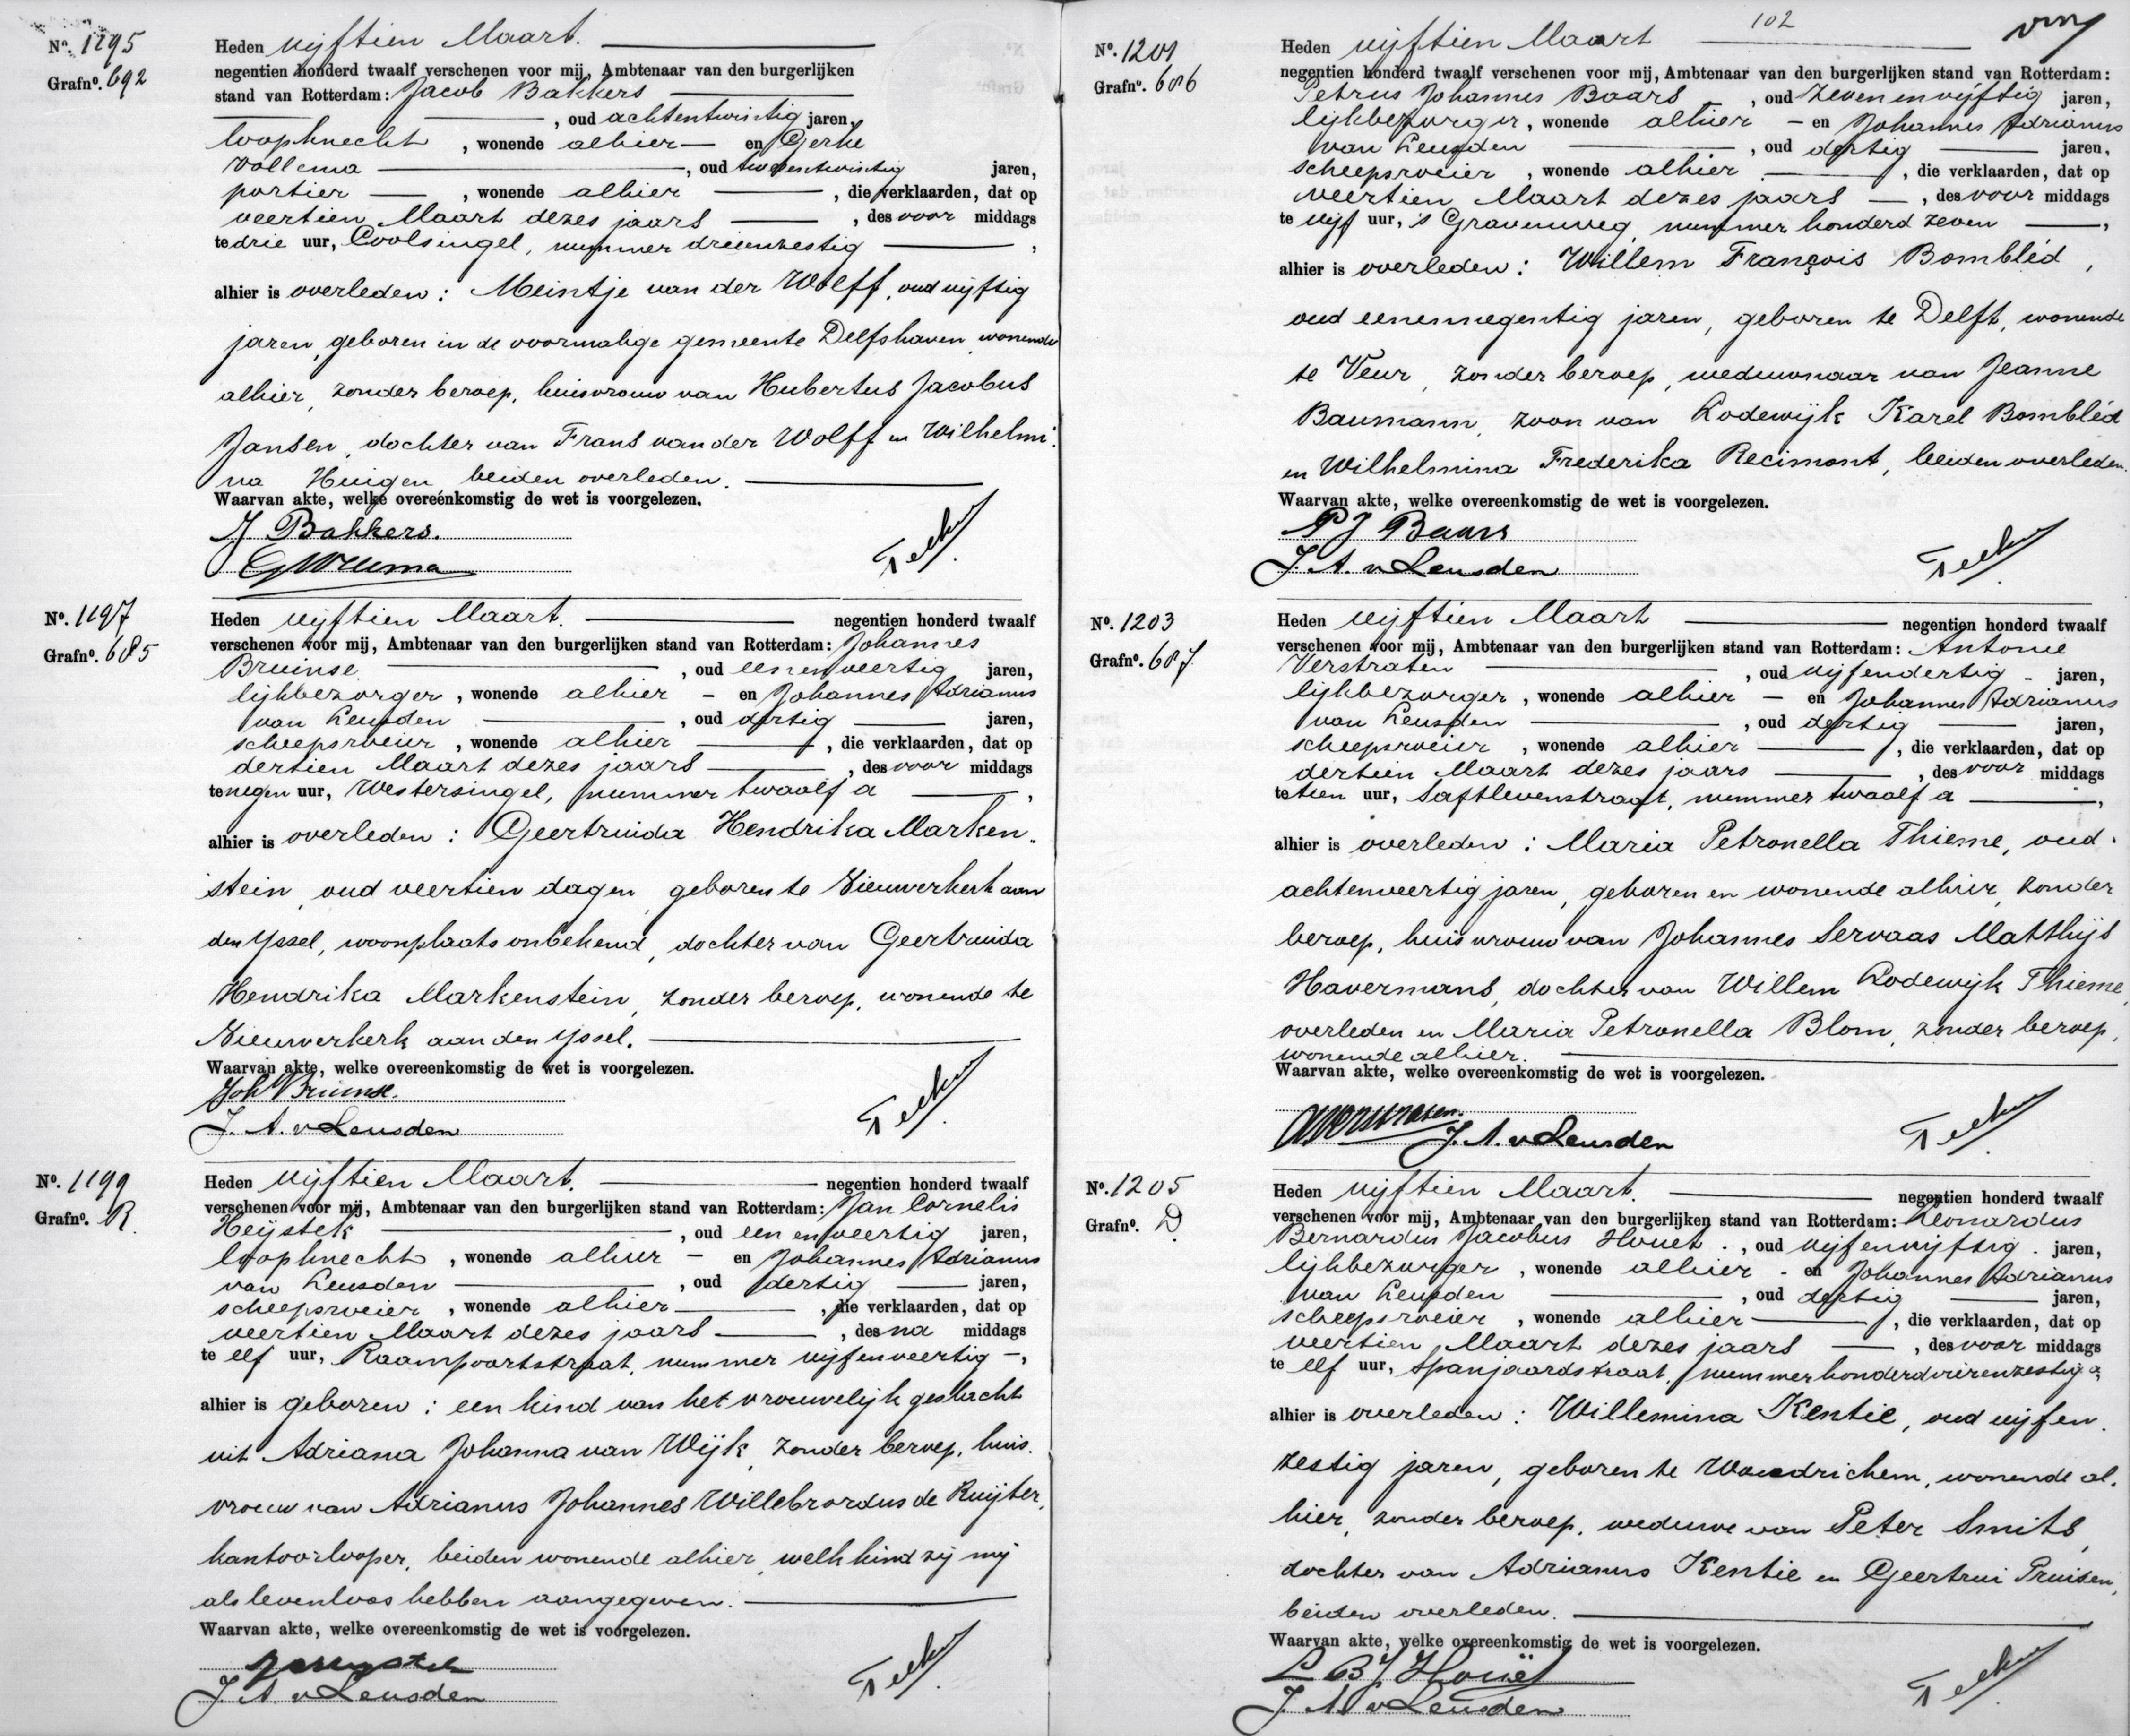 Nº. 1195
Grafnº. 692
Heden vijftien Maart.
negentien honderd twaalf verschenen voor mij, Ambtenaar van den burgerlijken
stand van Rotterdam: Jacob Bakkers
, oud achtentwintig jaren,
loopknecht , wonende alhier en Gerke
Wollema , oud tweeentwintig jaren,
portier , wonende alhier , die verklaarden, dat op
veertien Maart dezes jaars , des voor middags
te drie uur, Coolsingel, nummer drieenzestig ,
alhier is overleden: Meintje van der Wolff, oud vijftig
jaren, geboren in de voormalige gemeente Delfshaven, wonende
alhier, zonder beroep, huisvrouw van Hubertus Jacobus
Jansen, dochter van Frans van der Wolff en Wilhelmi-
na Huigen beiden overleden.
Waarvan akte, welke overeenkomstig de wet is voorgelezen.
J Bakkers.
Nº. 1197
Grafnº. 685
Heden vijftien Maart. negentien honderd twaalf
verschenen voor mij, Ambtenaar van den burgerlijken stand van Rotterdam: Johannes
Bruinse , oud eenenveertig jaren,
lijkbezorger , wonende alhier - en Johannes Adrianus
van Leusden , oud dertig jaren,
scheepsroeier , wonende alhier , die verklaarden, dat op
dertien Maart dezes jaars , des voor middags
te negen uur, Westersingel, nummer twaalf a ,
alhier is overleden: Geertruida Hendrika Marken-
stein, oud veertien dagen, geboren te Nieuwerkerk aan
den Yssel, woonplaats onbekend, dochter van Geertruida
Hendrika Markenstein, zonder beroep, wonende te
Nieuwerkerk aan den Yssel.
Waarvan akte, welke overeenkomstig de wet is voorgelezen.
Joh Bruinse.
J. A. v Leusden
Nº. 1199
Grafnº. R.
Heden vijftien Maart. negentien honderd twaalf
verschenen voor mij, Ambtenaar van den burgerlijken stand van Rotterdam: Jan Cornelis
Heijstek , oud een en veertig jaren,
loopknecht , wonende alhier - en Johannes Adrianus
van Leusden , oud dertig jaren,
scheepsroeier , wonende alhier , die verklaarden, dat op
veertien Maart dezes jaars , des na middags
te elf uur, Raampoortstraat, nummer vijfenveertig -,
alhier is geboren: een kind van het vrouwelijk geslacht
uit Adriana Johanna van Wijk, zonder beroep, huis-
vrouw van Adrianus Johannes Willebrordus de Ruijter,
kantoorlooper, beiden wonende alhier, welk kind zij mij
als levenloos hebben aangegeven.
Waarvan akte, welke overeenkomstig de wet is voorgelezen.
J. A. v Leusden
102
Nº. 1201
Grafnº. 686
Heden vijftien Maart
negentien honderd twaalf verschenen voor mij, Ambtenaar van den burgerlijken stand van Rotterdam:
Petrus Johannes Baars , oud zevenenvijftig jaren,
lijkbezorger, wonende alhier - en Johannes Adrianus
van Leusden , oud dertig jaren,
scheepsroeier , wonende alhier , die verklaarden, dat op
veertien Maart dezes jaars , des voor middags
te vijf uur, 's Gravenweg, nummer honderd zeven ,
alhier is overleden: Willem François Bombléd,
oud eenennegentig jaren, geboren te Delft, wonende
te Veur, zonder beroep, weduwnaar van Jeanne
Baumann, zoon van Lodewijk Karel Bombléd
en Wilhelmina Frederika Recimont, beiden overleden.
Waarvan akte, welke overeenkomstig de wet is voorgelezen.
P J Baars
J. A. v Leusden
Nº. 1203
Grafnº. 687
Heden vijftien Maart negentien honderd twaalf
verschenen voor mij, Ambtenaar van den burgerlijken stand van Rotterdam: Antonie
Verstraten , oud vijfendertig - jaren,
lijkbezorger , wonende alhier - en Johannes Adrianus
van Leusden , oud dertig jaren,
scheepsroeier , wonende alhier , die verklaarden, dat op
dertien Maart dezes jaars , des voor middags
te tien uur, Saftlevenstraat, nummer twaalf a ,
alhier is overleden: Maria Petronella Thieme, oud
achtenveertig jaren, geboren en wonende alhier, zonder
beroep, huisvrouw van Johannes Servaas Matthijs
Havermans, dochter van Willem Lodewijk Thieme,
overleden en Maria Petronella Blom, zonder beroep,
wonende alhier.
Waarvan akte, welke overeenkomstig de wet is voorgelezen.
J. A. v Leusden
Nº. 1205
Grafnº. D.
Heden vijftien Maart. negentien honderd twaalf
verschenen voor mij, Ambtenaar van den burgerlijken stand van Rotterdam: Leonardus
Bernardus Jacobus Houët , oud vijfenvijftig jaren,
lijkbezorger , wonende alhier - en Johannes Adrianus
van Leusden , oud dertig jaren,
scheepsroeier , wonende alhier , die verklaarden, dat op
veertien Maart dezes jaars , des voor middags
te elf uur, Spanjaardstraat, nummer honderdvierenzestig a,
alhier is overleden: Willemina Kentie, oud vijfen-
zestig jaren, geboren te Woudrichem, wonende al-
hier, zonder beroep, weduwe van Peter Smits,
dochter van Adrianus Kentie en Geertrui Pruisen,
beiden overleden.
Waarvan akte, welke overeenkomstig de wet is voorgelezen.
L B J Houët
J. A. v Leusden